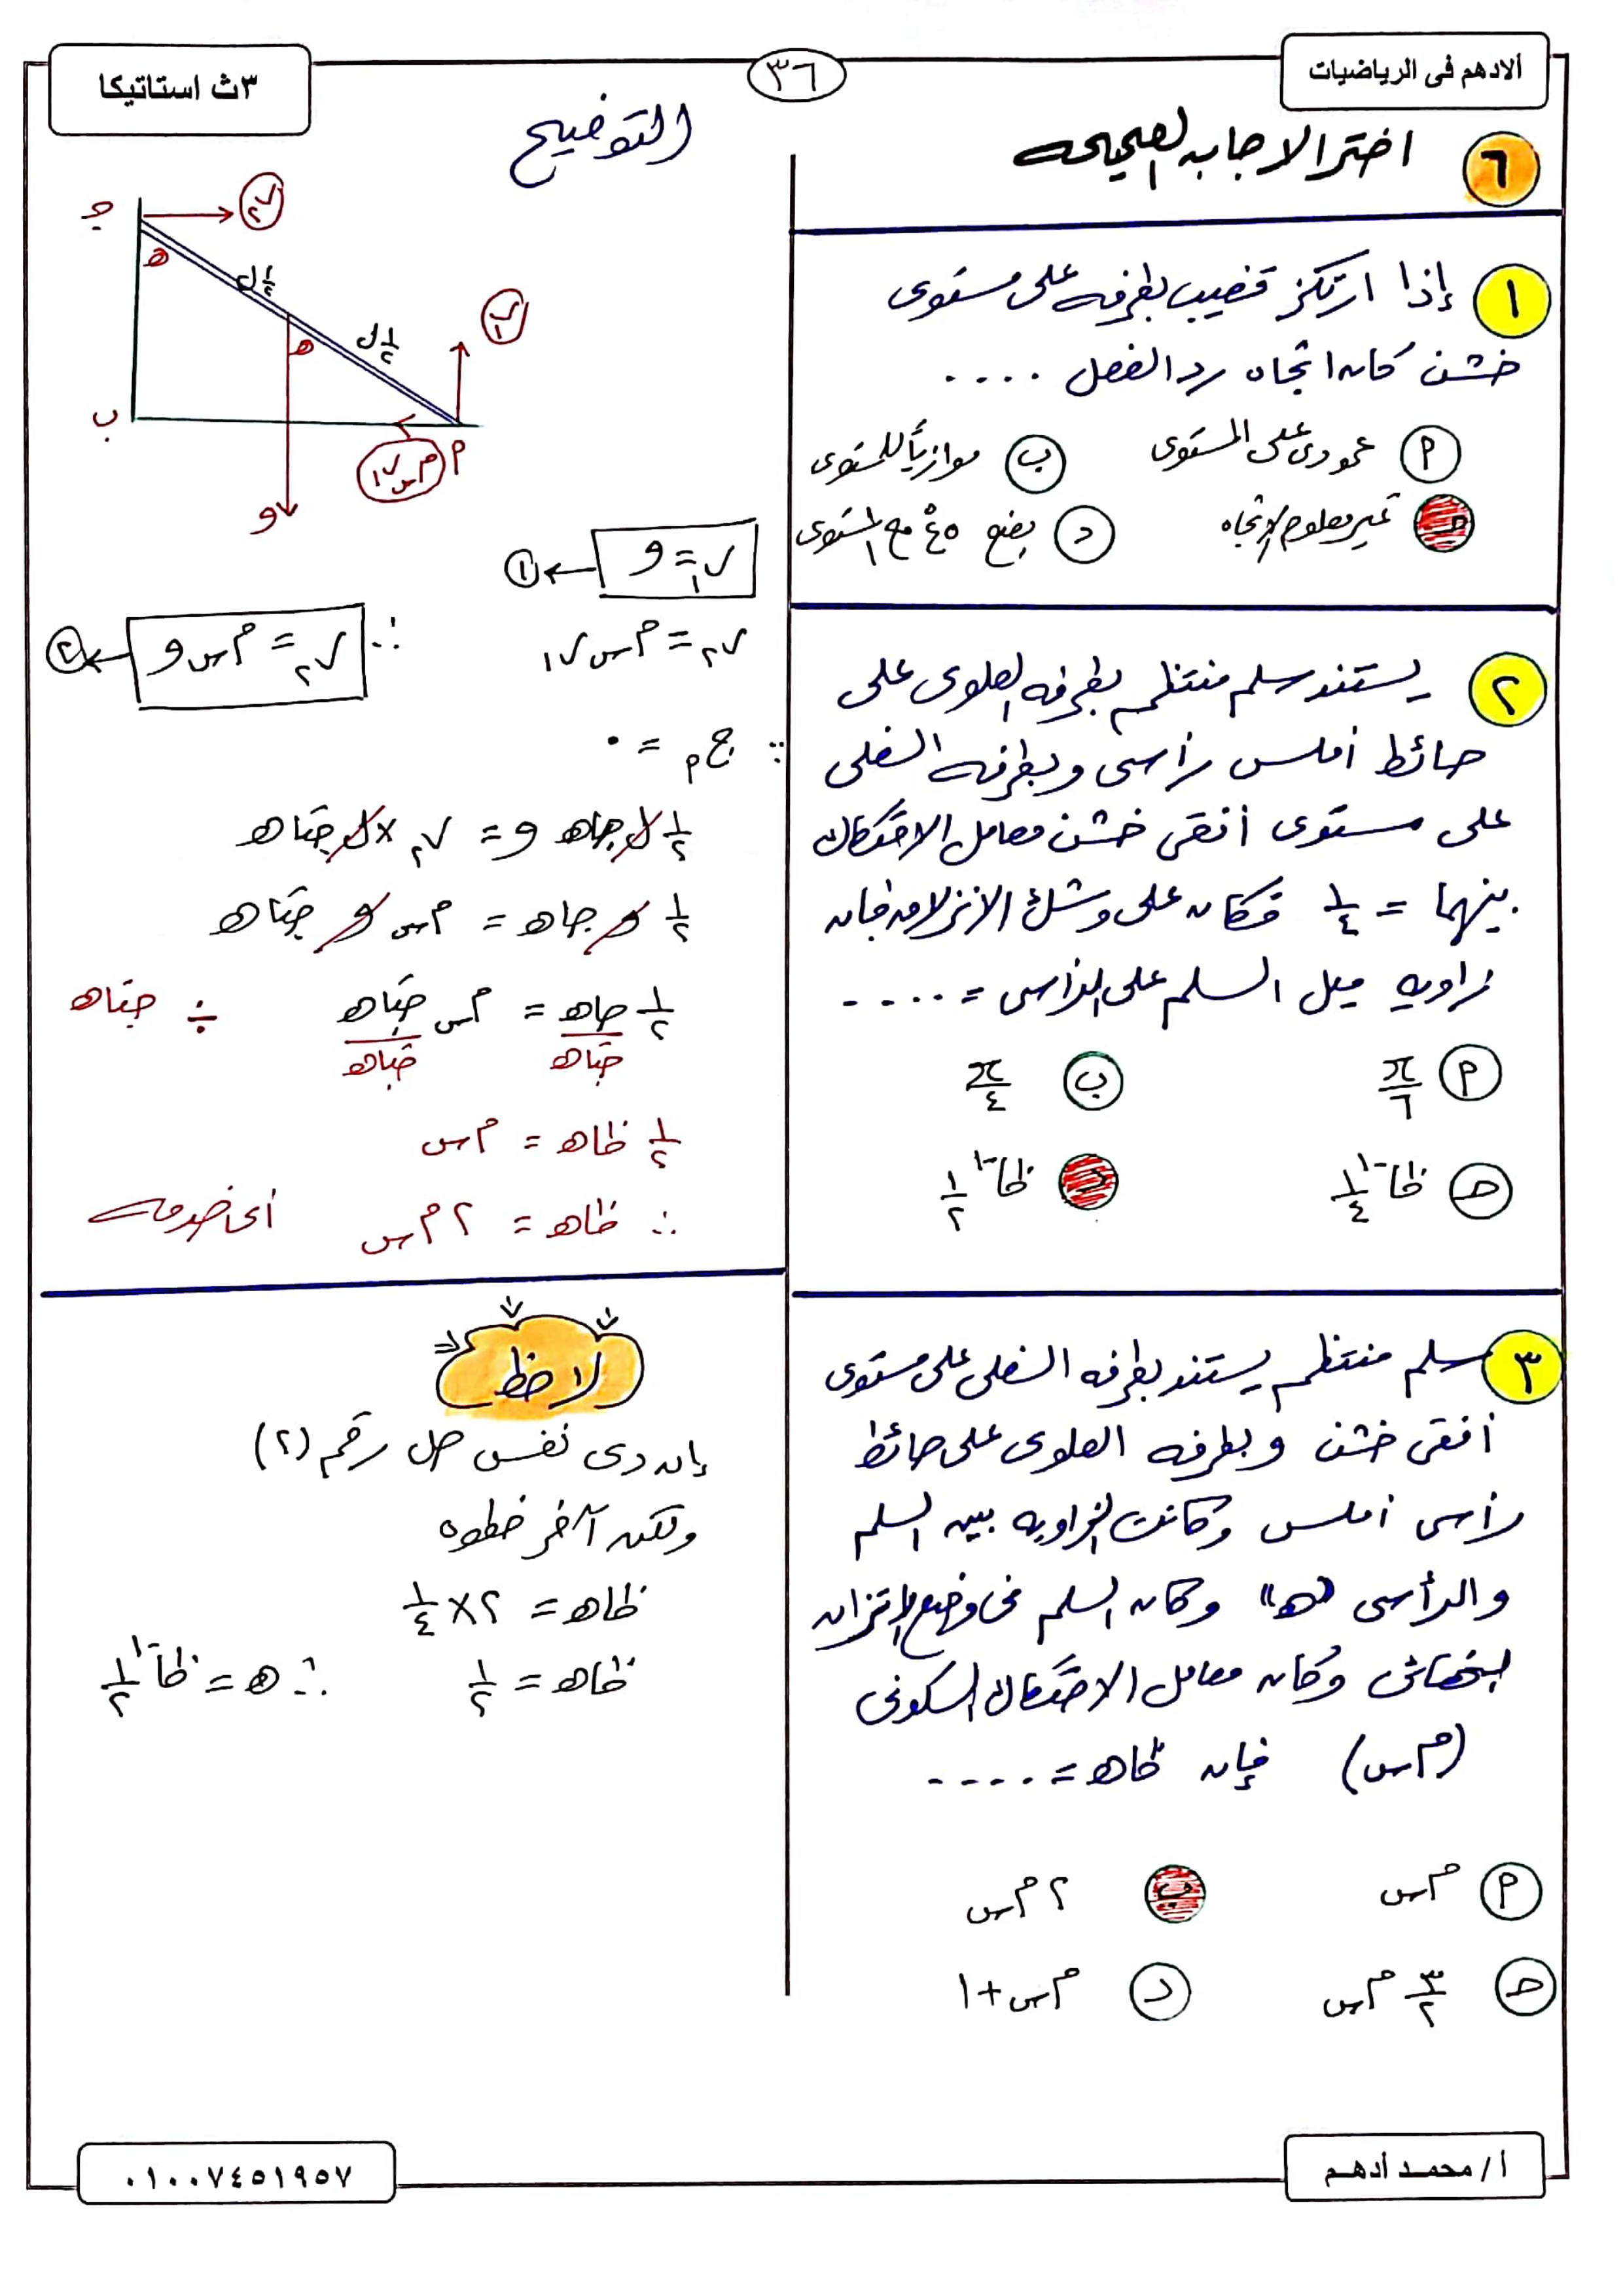 ألادهم فى الرياضيات
٣٦
٣ث استاتيكا
٦ اختر الاجابه الصحيحه
١ إذا ارتكز قضيب بطرفه على مستوى
خشن كان اتجاه رد الفعل ....
أ عمودى على المستوى
ب موازياً للمستوى
حـ غير معلوم الاتجاه
د يصنع ٤٥° مع المستوى
٢ يستند سلم منتظم بطرفه العلوى على
حائط أملس رأسى وبطرفه السفلى
على مستوى أفقى خشن معامل الاحتكاك
بينهما = ١/٤ فكان على وشك الانزلاق فإن
زاويه ميل السلم على الرأسى = ....
أ π/٦
ب π/٤
حـ ظا⁻¹ ١/٤
د ظا⁻¹ ١/٢
٣ سلم منتظم يستند بطرفه السفلى على مستوى
أفقى خشن وبطرفه العلوى على حائط
رأسى أملس وكانت الزاويه بين السلم
والرأسى "هـ" وكان السلم فى وضع الاتزان
النهائى وكان معامل الاحتكاك السكونى
(م س) فإن ظاهـ = ....
أ م س
ب ٢ م س
حـ ٣/٢ م س
د م س + ١
التوضيح
جـ
هـ
١/٢ ل
١/٢ ل
هـ
ر٢
ر١
ب
م س ر١
أ
و
ر١ = و ← ١
ر٢ = م س ر١ ∴ ر٢ = م س و ← ٢
∵ ج أ = ٠
١/٢ ل جاهـ و = ر٢ × ل جتاهـ
١/٢ و جاهـ = م س و جتاهـ
١/٢ جاهـ/جتاهـ = م س جتاهـ/جتاهـ ÷ جتاهـ
١/٢ ظاهـ = م س
∴ ظاهـ = ٢ م س أى خدمه
لاحظ
إن دى نفس حل رقم (٢)
ولكن آخر خطوه
ظاهـ = ٢ × ١/٤
ظاهـ = ١/٢ ∴ هـ = ظا⁻¹ ١/٢
أ / محمـد أدهـم
٠١٠٠٧٤٥١٩٥٧